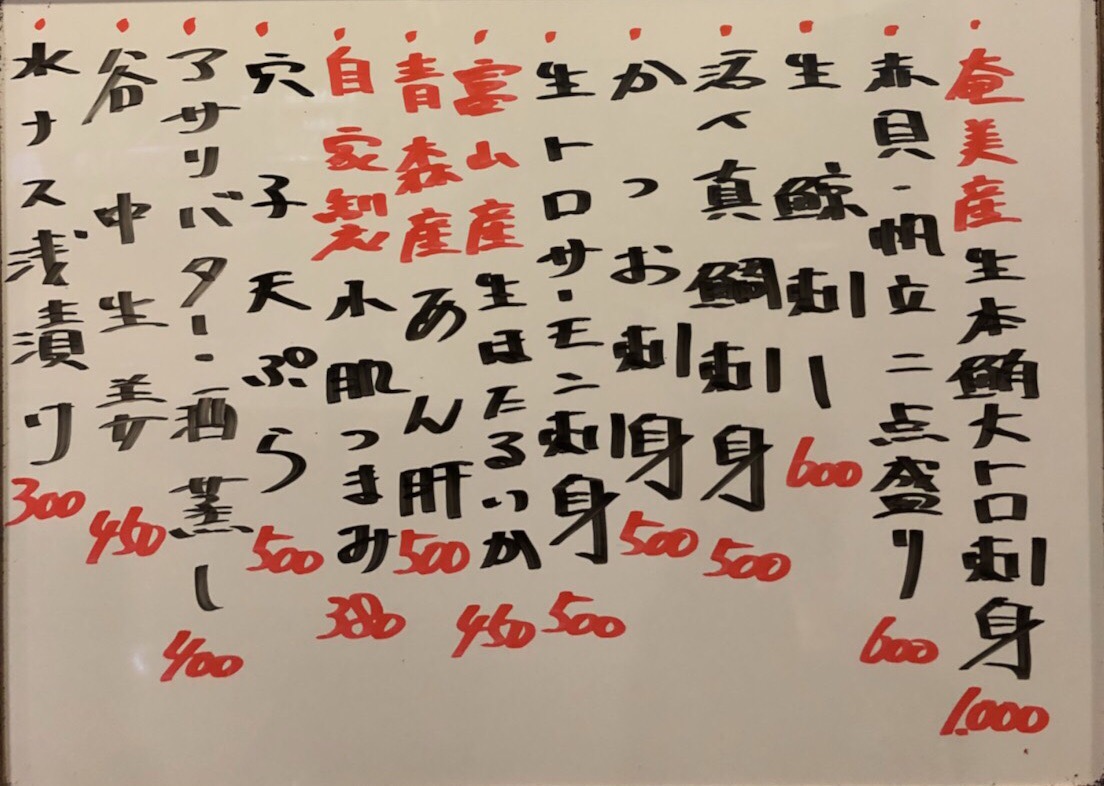 奄美産生本鮪大トロ刺身 1.000
赤貝・帆立二点盛り 600
生鯨刺し 600
活〆真鯛刺身 500
かつお刺身 500
生トロサーモン刺身 500
富山産生ほたるいか 450
青森産あん肝 500
自家製小肌つまみ 380
穴子天ぷら 500
アサリバター・酒蒸し 400
谷中生姜 450
水ナス浅漬り 300